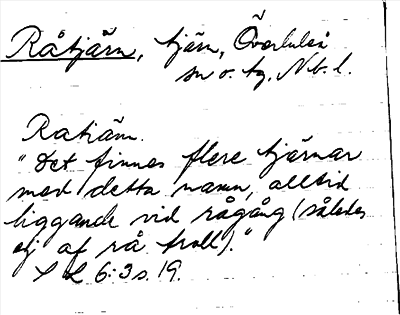 Råtjärn, tjärn, Överluleå
sn o. tg, Nb. l.
Ratiäm.
"Det finnes flere tjärnar
med detta namn, alltid
liggande vid rågång (således
ej af rå troll)."
S L 6:3 s. 19.